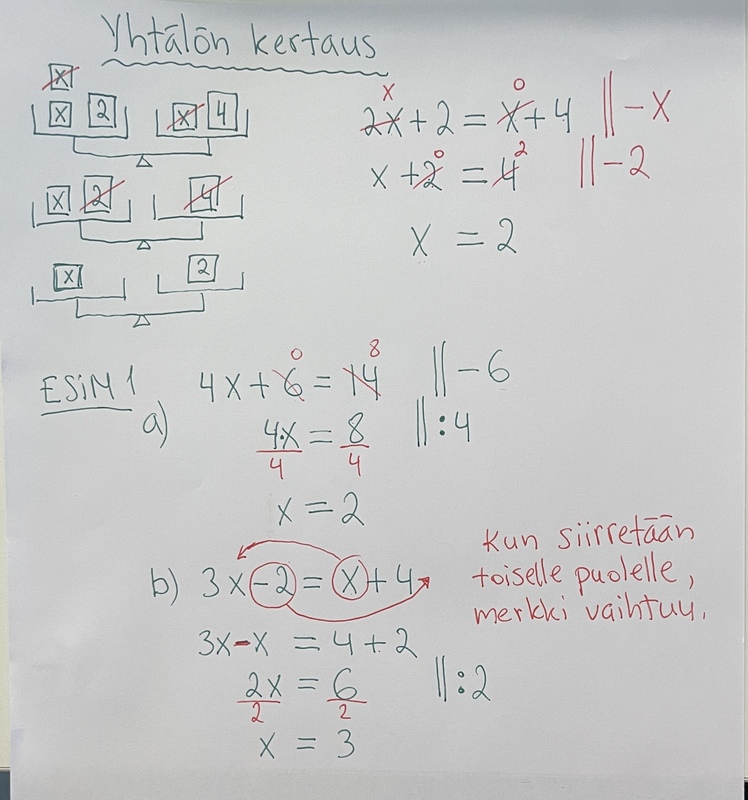 Yhtälön kertaus
x
x 2 x 4
x 2 4
x 2
x 0
2x + 2 = x + 4 || - x
0 2
x + 2 = 4 || - 2
x = 2
ESiM 1
0 8
a) 4x + 6 = 14 || - 6
4·x = 8 || : 4
4 4
x = 2
b) 3x - 2 = x + 4
3x - x = 4 + 2
2x = 6 || : 2
2 2
x = 3
Kun siirretään
toiselle puolelle,
merkki vaihtuu.